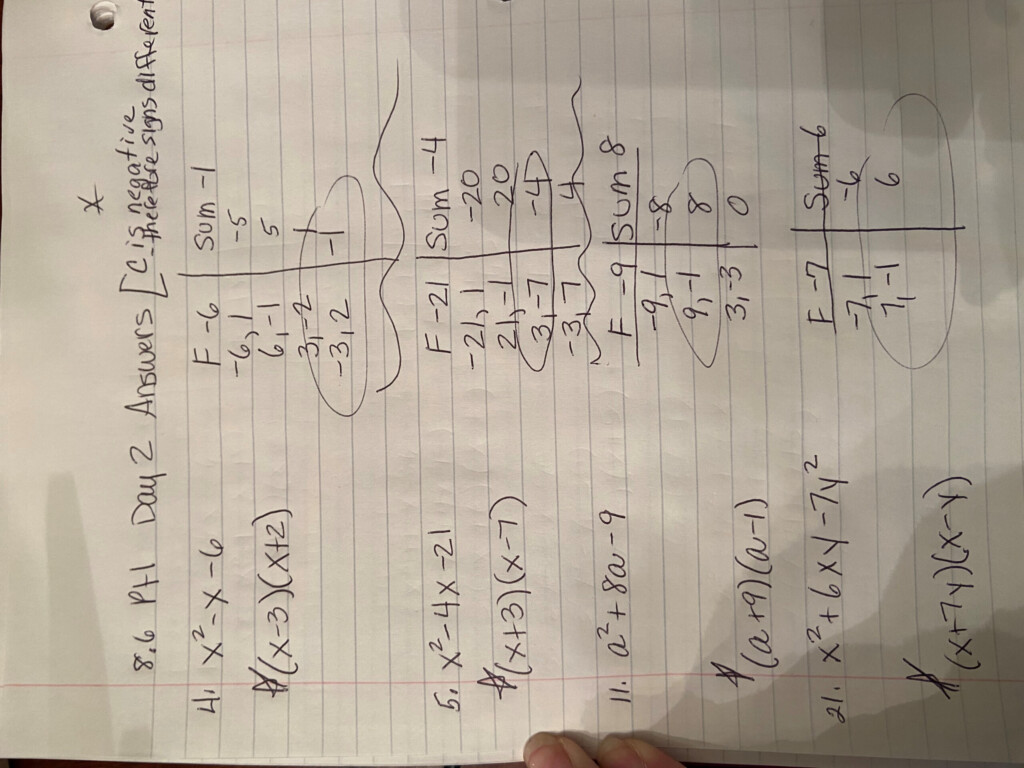 *
8.6 Pt1 Day 2 Answers [C is negative
therefore signs different
4. x² - x - 6
(x-3)(x+2)
F -6 | Sum -1
-6, 1 | -5
6, -1 | 5
3, -2 | 1
-3, 2 | -1
5. x² - 4x - 21
(x+3)(x-7)
F -21 | Sum -4
-21, 1 | -20
21, -1 | 20
3, -7 | -4
-3, 7 | 4
11. a² + 8a - 9
(a+9)(a-1)
F -9 | Sum 8
-9, 1 | -8
9, -1 | 8
3, -3 | 0
21. x² + 6xy - 7y²
(x+7y)(x-y)
F -7 | Sum 6
-7, 1 | -6
7, -1 | 6